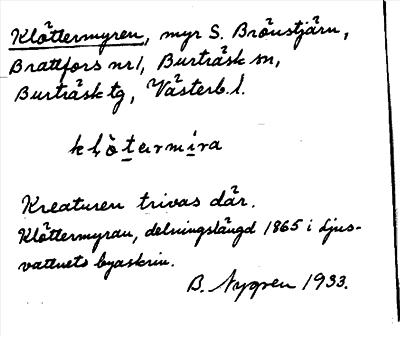 Klöttermyren, myr S. Brännstjärn,
Brattfors nr1, Burträsk sn,
Burträsk tg, Västerb. l.
klò̀tərmíra
Kreaturen trivas där.
Klöttermyran, delningslängd 1865 i Ljus-
vattnets byaskrin.
B. Nygren 1933.